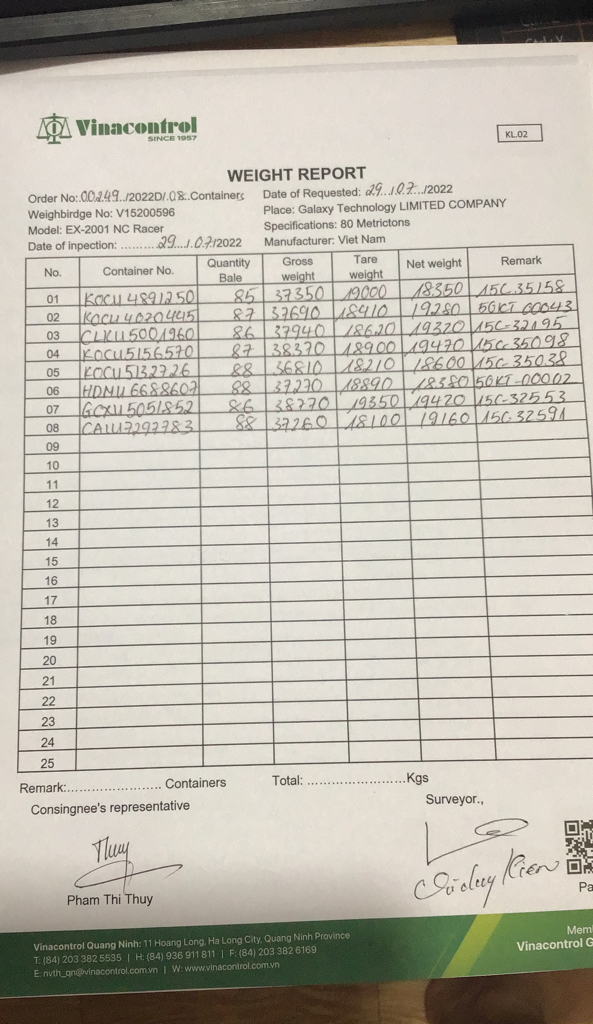 Vinacontrol
SINCE 1957
KL.02
WEIGHT REPORT
Order No:.00249../2022D/.08..Containers Date of Requested: 29../.07../2022
Weighbirdge No: V15200596 Place: Galaxy Technology LIMITED COMPANY
Model: EX-2001 NC Racer Specifications: 80 Metrictons
Date of inpection: .........29.../.07/2022 Manufacturer: Viet Nam
No. Container No. Quantity Bale Gross weight Tare weight Net weight Remark
01 KOCU 4891250 85 37350 19000 18350 15C.35158
02 KOCU 4020445 87 37690 18410 19280 50KT 00043
03 CLKU 5001960 86 37940 18620 19320 15C-32195
04 KOCU 5156570 87 38370 18900 19470 15C-35098
05 KOCU 5132726 88 36810 18210 18600 15C-35038
06 HDMU 6688607 88 37270 18890 18380 50KT-00002
07 GCXU 5051852 86 38770 19350 19420 15C-32553
08 CAIU 7297783 88 37260 18100 19160 15C.32591
09
10
11
12
13
14
15
16
17
18
19
20
21
22
23
24
25
Remark:....................... Containers Total: ........................Kgs
Consingnee's representative Surveyor.,
Thuy
Pham Thi Thuy
Vinacontrol Quang Ninh: 11 Hoang Long, Ha Long City, Quang Ninh Province
T: (84) 203 382 5535 | H: (84) 936 911 811 | F: (84) 203 382 6169
E: nvth_qn@vinacontrol.com.vn | W: www.vinacontrol.com.vn
Vinacontrol